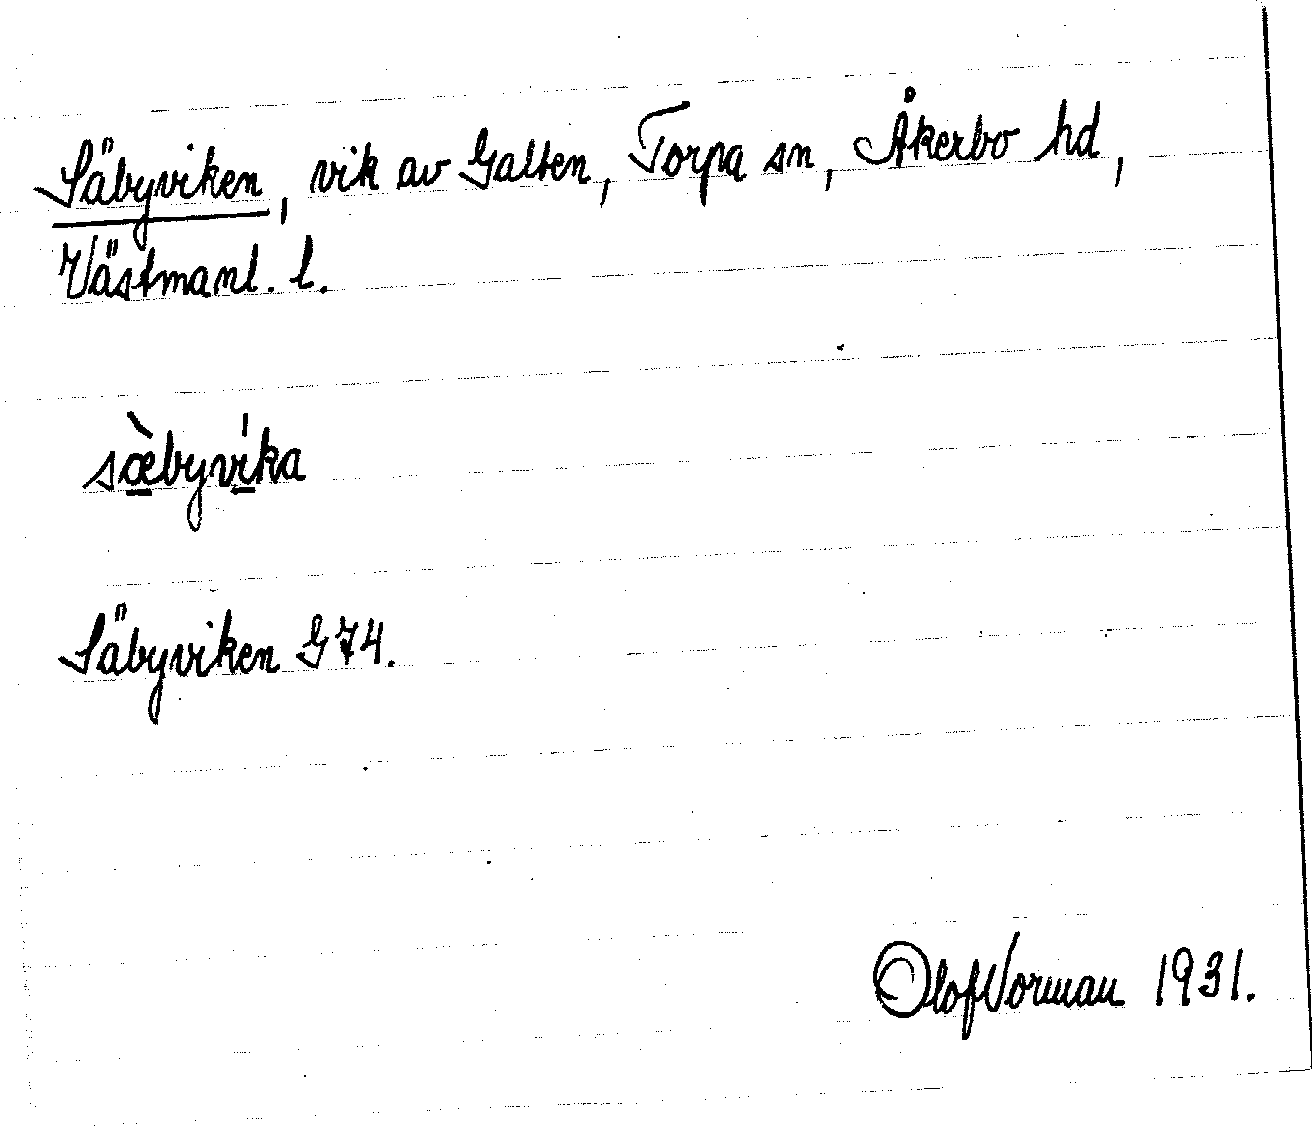 Säbyviken, vik av Galten, Torpa sn, Åkerbo hd,
Västmanl. l.
sæ̀byvíka
Säbyviken G 74.
Olof Norman 1931.